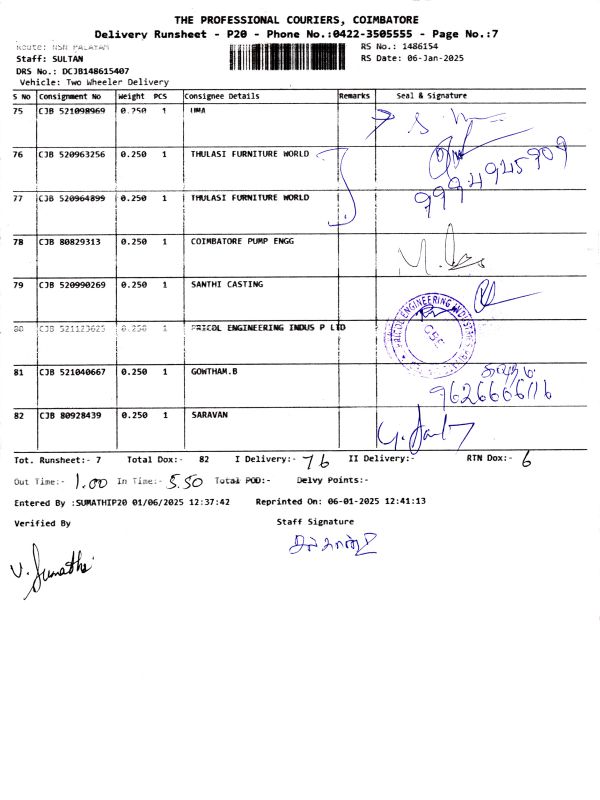 THE PROFESSIONAL COURIERS, COIMBATORE
Delivery Runsheet - P20 - Phone No.:0422-3505555 - Page No.:7
Route: NSN PALAYAM
RS No.: 1486154
Staff: SULTAN
RS Date: 06-Jan-2025
DRS No.: DCJB148615407
Vehicle: Two Wheeler Delivery
S No Consignment No Weight PCS Consignee Details Remarks Seal & Signature
75 CJB 521098969 0.250 1 UMA
76 CJB 520963256 0.250 1 THULASI FURNITURE WORLD
9994945909
77 CJB 520964899 0.250 1 THULASI FURNITURE WORLD
78 CJB 80829313 0.250 1 COIMBATORE PUMP ENGG
79 CJB 520990269 0.250 1 SANTHI CASTING
80 CJB 521123625 0.250 1 PRICOL ENGINEERING INDUS P LTD
81 CJB 521040667 0.250 1 GOWTHAM.B
9626606116
82 CJB 80928439 0.250 1 SARAVAN
Tot. Runsheet:- 7 Total Dox:- 82 I Delivery:- 76 II Delivery:- RTN Dox:- 6
Out Time:- 1.00 In Time:- 5.50 Total POD:- Delvy Points:-
Entered By :SUMATHIP20 01/06/2025 12:37:42 Reprinted On: 06-01-2025 12:41:13
Verified By Staff Signature
V. Sumathi